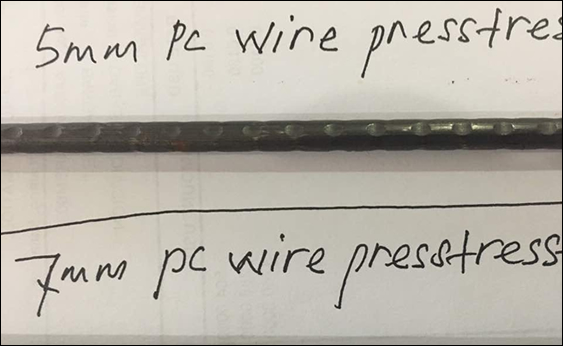 5mm pc wire presstres
7mm pc wire presstress